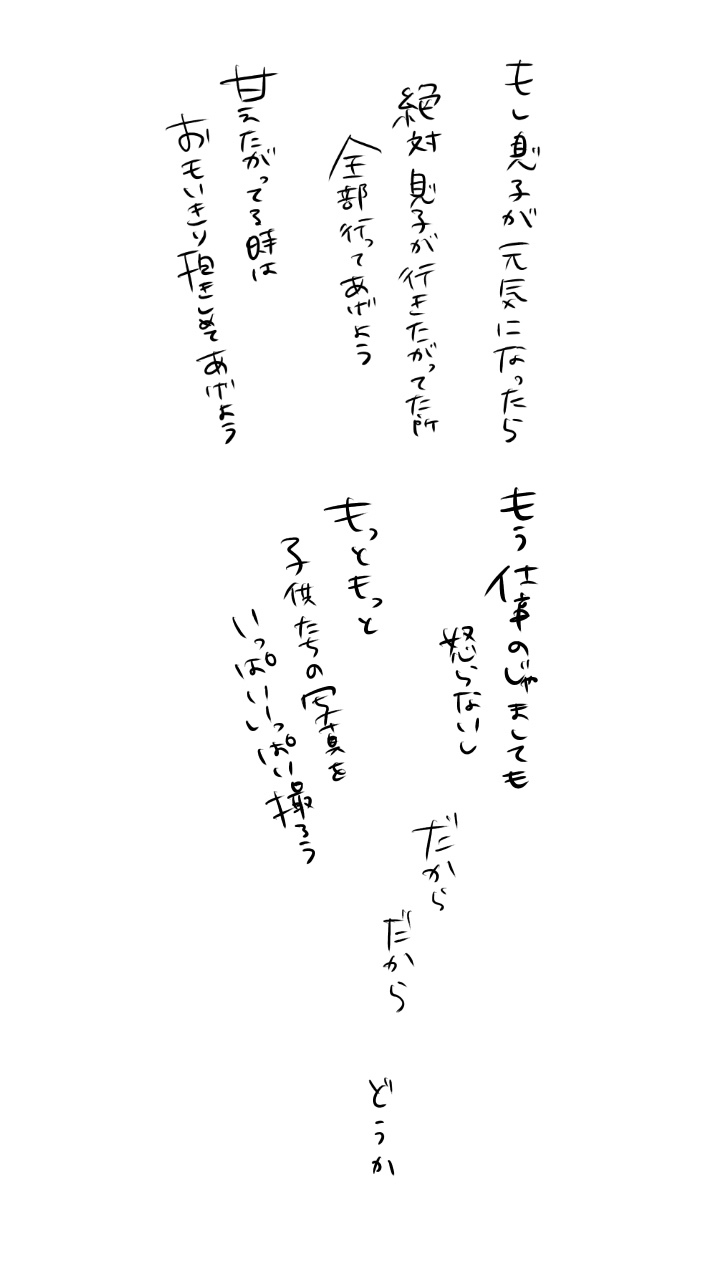 もし息子が元気になったら
絶対息子が行きたがってた所
全部行ってあげよう
甘えたがってる時は
おもいきり抱きしめてあげよう
もう仕事のじゃましても
怒らないし
もっともっと
子供たちの写真を
いっぱいいっぱい撮ろう
だから
だから
どうか